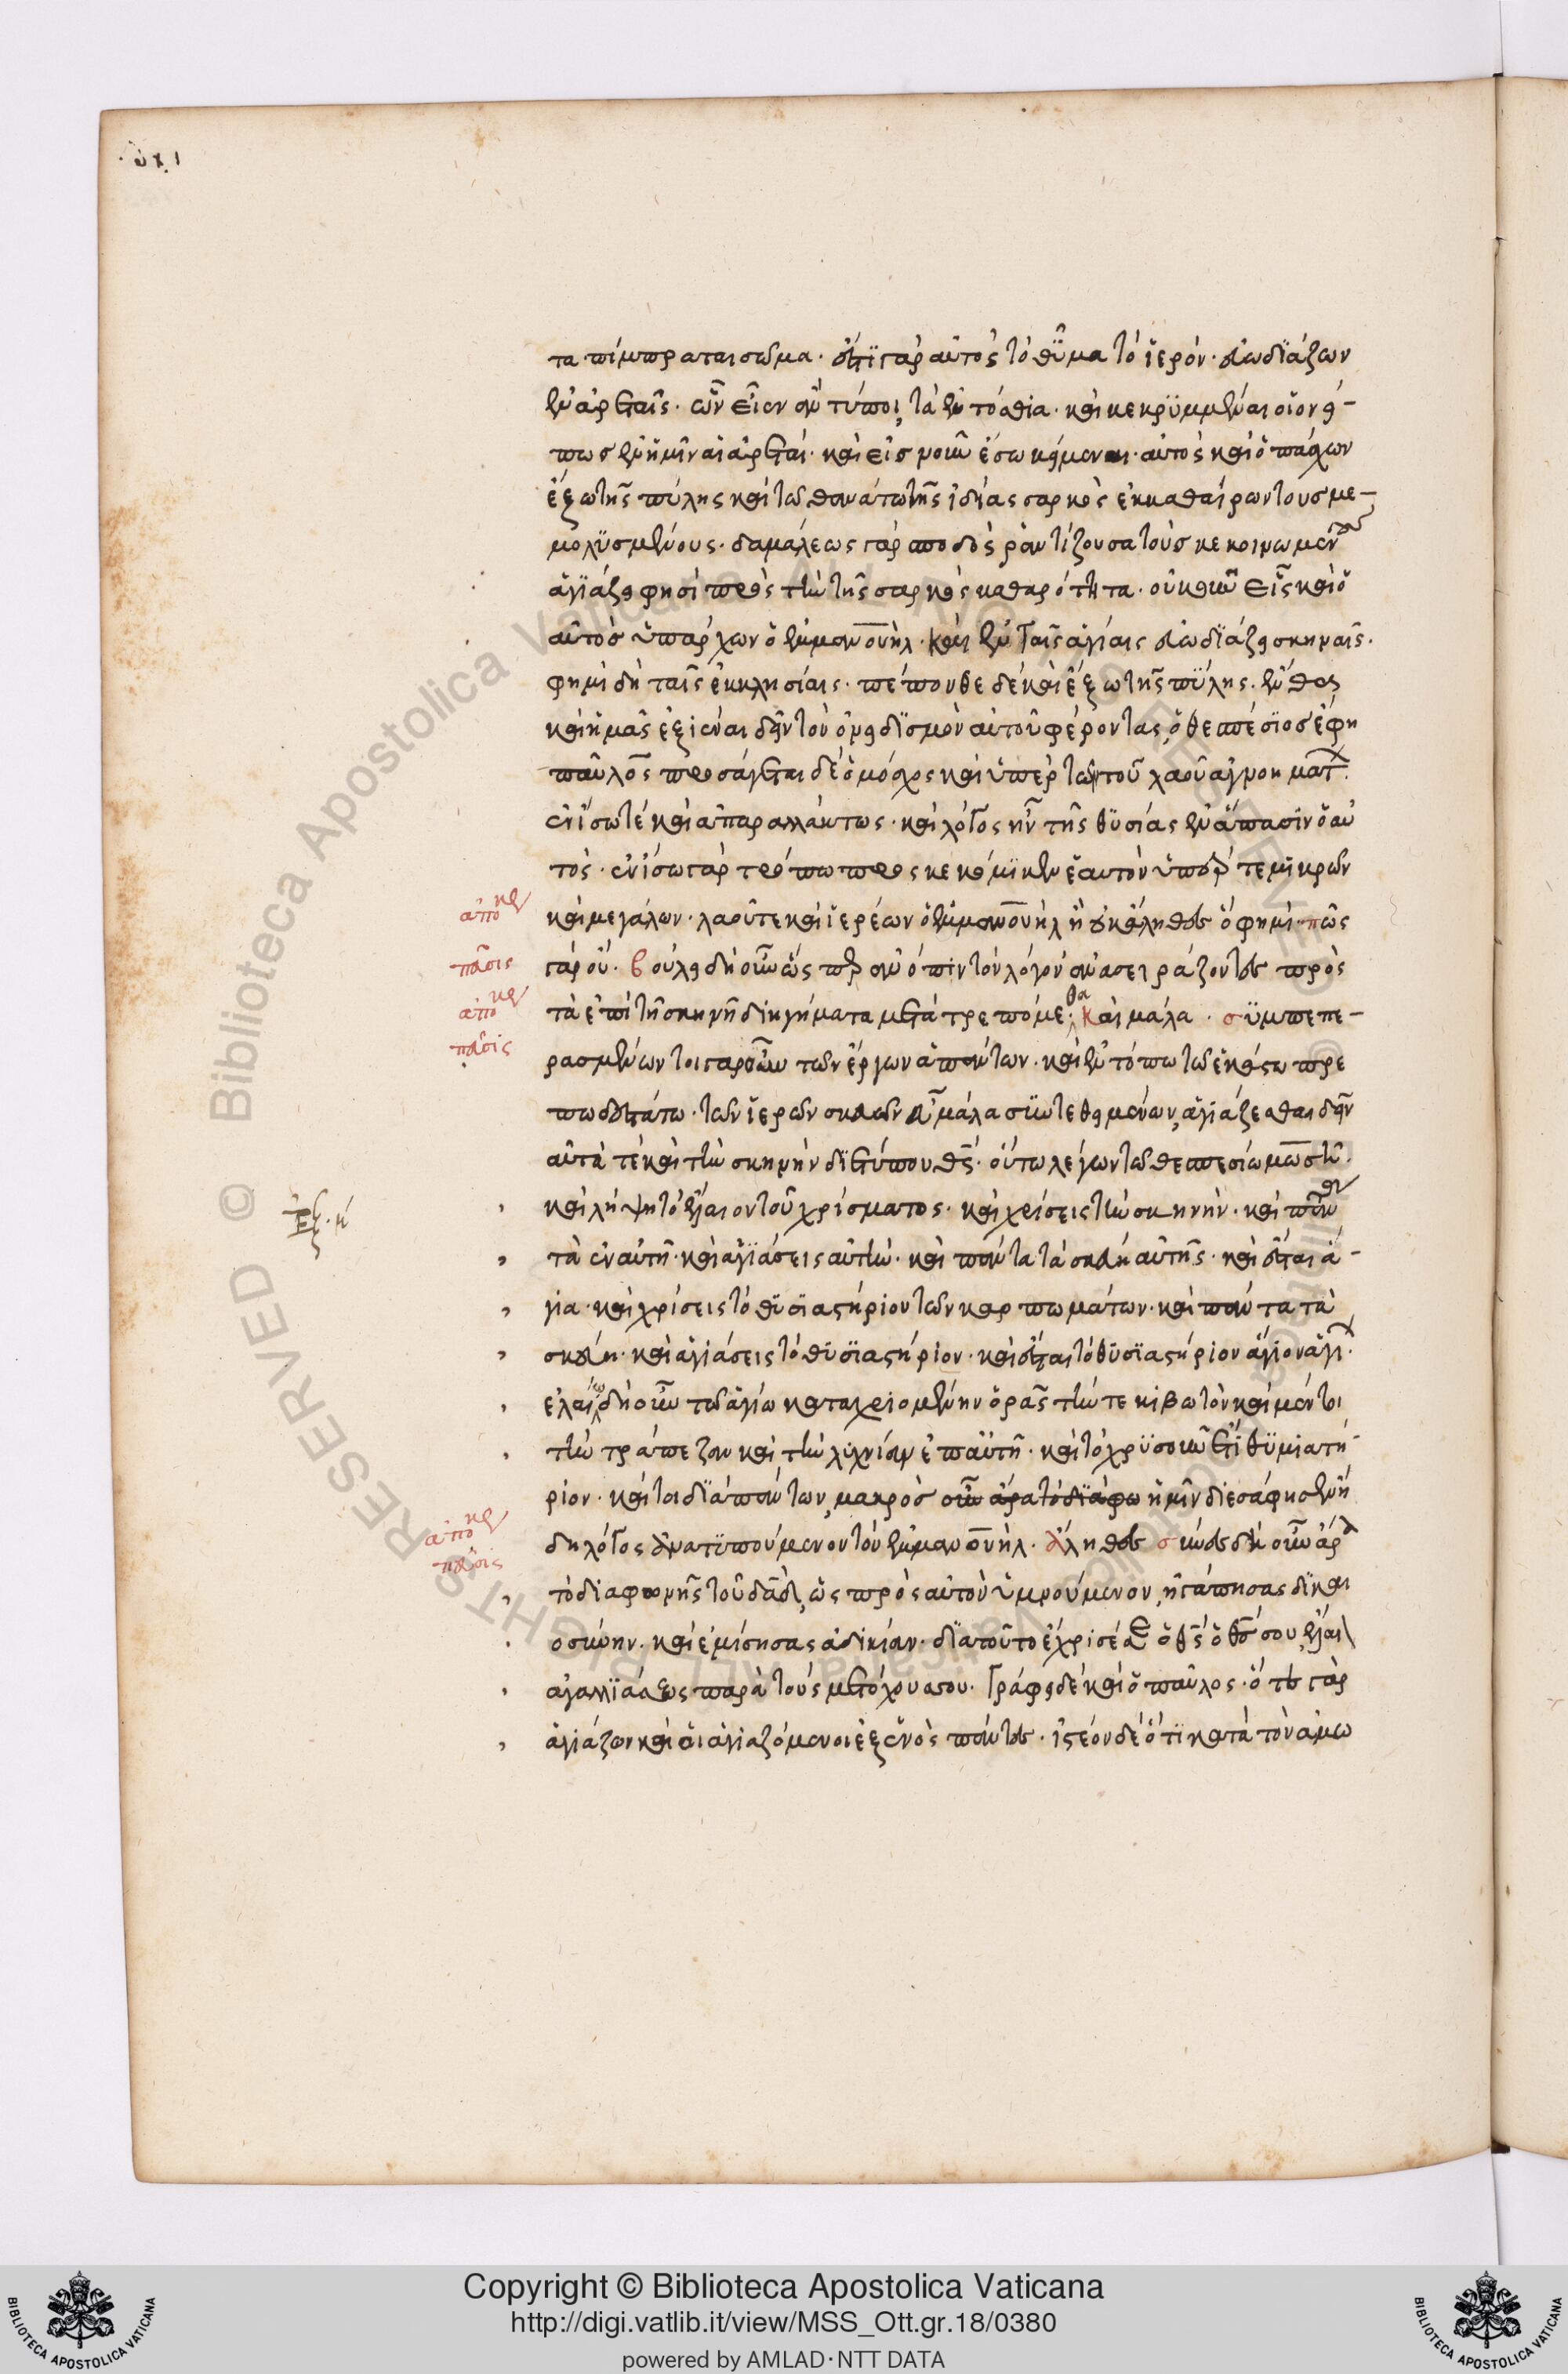 τα πίμπραται σῶμα· ἔστι γὰρ αὐτὸς τὸ θῦμα τὸ ἱερόν· εὐωδιάζων
ἐν ἀρεταῖς· ὧν εἶεν ἂν τύποι, τὰ ἐντόσθια· καὶ κεκρυμμέναι οἷον εἴ-
πως ἐν ἡμῖν αἱ ἀρεταί· καὶ εἰς νοῦν ἔσω κείμεναι· αὐτὸς καὶ ὁ πάσχων
ἔξω τῆς πύλης καὶ τῶ θανάτω τῆς ἰδίας σαρκὸς ἐκκαθαίρων τοὺς με-
μολυσμένους· δαμάλεως γὰρ σποδὸς ῥαντίζουσα τοὺς κεκοινωμένους
ἁγιάζει φησὶ πρὸς τὴν τῆς σαρκὸς καθαρότητα· οὐκοῦν εἷς καὶ ὁ
αὐτὸς ὑπάρχων ὁ ἐμμανουὴλ· καὶ ἐν ταῖς ἁγίαις εὐωδιάζει σκηναῖς·
φημὶ δὴ ταῖς ἐκκλησίαις· πέπονθε δὲ καὶ ἔξω τῆς πύλης· ἔνθα
καὶ ἡμᾶς ἐξιέναι δεῖν τὸν ὀνειδισμὸν αὐτοῦ φέροντας, ὁ θεσπέσιος ἔφη
παῦλος προσάγεται δὲ ὁ μόσχος καὶ ὑπὲρ τῶν τοῦ λαοῦ ἀγνοημάτων·
ἐν ἴσω τὲ καὶ ἀπαραλλάκτως· καὶ λόγος ἦν τῆς θυσίας ἐν ἅπασιν ὁ αὐ
τός· ἐν ἴσω γὰρ τρόπω προσκεκόμικεν ἑαυτὸν ὑπέρ τε μικρῶν
καὶ μεγάλων· λαοῦ τε καὶ ἱερέων ὁ ἐμμανουὴλ ἢ οὐκ ἀληθὲς ὅ φημι· πῶς
γὰρ οὔ· βούλει δὴ οὖν ὡς περ ἀνόπιν τὸν λόγον ἀνασειράζοντες πρὸς
τὰ ἐπὶ τῆ σκηνῆ διηγήματα μετατρεπόμεθα· καὶ μάλα· συμπεπε-
ρασμένων τοιγαροῦν τῶν ἔργων ἁπάντων· καὶ ἐν τόπω τῶ ἑκάστω πρε
πωδεστάτω· τῶν ἱερῶν σκευῶν εὖ μάλα συντεθειμένων, ἁγιάζεσθαι δεῖν
αὐτὰ τὲ καὶ τὴν σκηνὴν διετύπου θς· οὕτω λέγων τῶ θεσπεσίω μωστῆ·
καὶ λήψη τὸ ἔλαιον τοῦ χρίσματος· καὶ χρίσεις τὴν σκηνήν· καὶ πάν
τα τὰ ἐν αὐτῆ· καὶ ἁγιάσεις αὐτήν· καὶ πάντα τὰ σκεύη αὐτῆς· καὶ ἔσται ἁ-
γία· καὶ χρίσεις τὸ θυσιαστήριον τῶν καρπωμάτων· καὶ πάντα τὰ
σκεύη· καὶ ἁγιάσεις τὸ θυσιαστήριον· καὶ ἔσται τὸ θυσιαστήριον ἅγιον ἁγίων·
ἐλαίω δὴ οὖν τῶ ἁγίω καταχριομένην ὁρᾶς τήν τε κιβωτὸν καὶ μέντοι
τὴν τράπεζαν καὶ τὴν λυχνίαν ἐπ' αὐτῆ· καὶ τὸ χρυσοῦν ἔτι θυμιατή-
ριον· καίτοι διὰ πάντων, μακρὸς οὖν ἄρα τὸ διάφω ἡμῖν διεσάφησεν ἤ
δη λόγος ἀνατυπούμενον τὸν ἐμμανουὴλ· ἀληθὲς συνὲς δὴ οὖν ἄρα
τὸ διὰ φωνῆς τοῦ δαδ, ὡς πρὸς αὐτὸν ὑμνούμενον, ἠγάπησας δικαι
οσύνην· καὶ ἐμίσησας ἀδικίαν· διὰ τοῦτο ἔχρισέ σε ὁ θς ὁ θς σου, ἔλαιον
ἀγαλλιάσεως παρὰ τοὺς μετόχους σου· γράφει δὲ καὶ ὁ παῦλος· ὅ τε γὰρ
ἁγιάζων καὶ οἱ ἁγιαζόμενοι ἐξ ἑνὸς πάντες· ἰστέον δὲ ὅτι κατὰ τὸν ἄνω
ἀπόκρ
πᾶσις
ἀπόκρ
πᾶσις
Ἐξ. κ
ἀπόκρ
πᾶσις
Copyright © Biblioteca Apostolica Vaticana
http://digi.vatlib.it/view/MSS_Ott.gr.18/0380
powered by AMLAD·NTT DATA
BIBLIOTECA APOSTOLICA VATICANA
BIBLIOTECA APOSTOLICA VATICANA